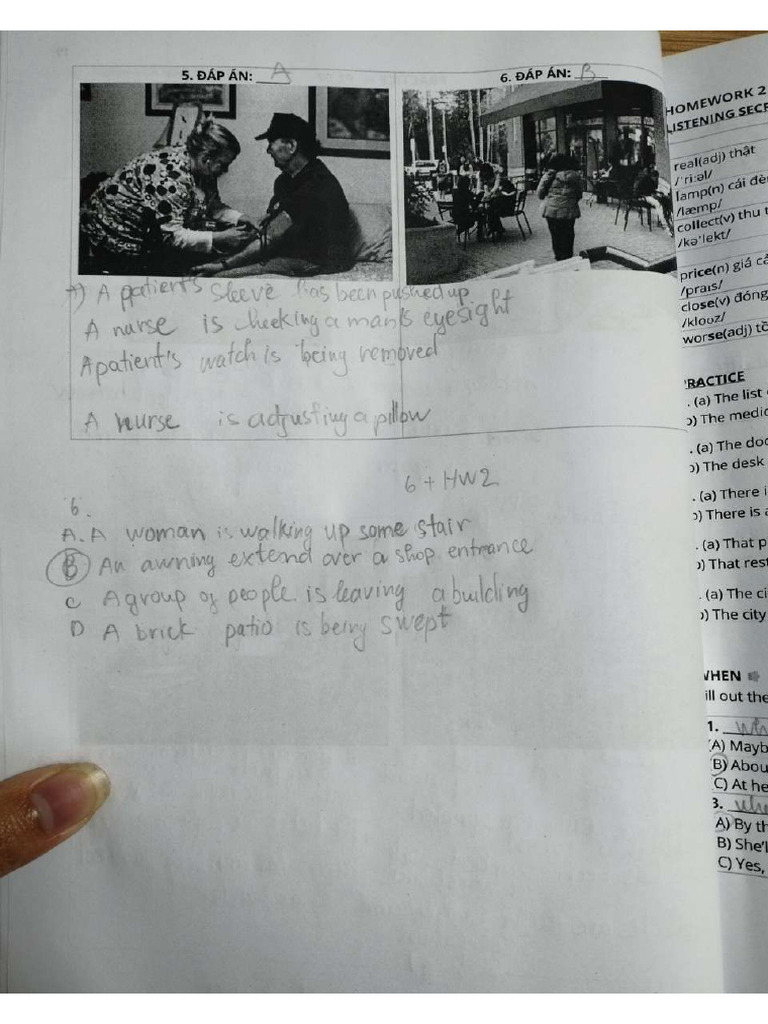 5. ĐÁP ÁN: A
6. ĐÁP ÁN: B
A) A patient's sleeve has been pushed up
A nurse is cheeking a man's eyesight
A patient's watch is being removed
A nurse is adjusting a pillow
6 + HW2
6.
A. A woman is walking up some stair
B An awning extend over a shop entrance
C A group of people is leaving a building
D A brick patio is being swept
HOMEWORK 2
LISTENING
real(adj) thật
/'ri:əl/
lamp(n) cái
/læmp/
collect(v) thu
/kə'lekt/
price(n) giá
/praɪs/
close(v) đóng
/kloʊz/
worse(adj)
(a) The list
) The
(a) The
) The desk
. (a) There
) There is
. (a) That
) That
. (a) The
) The city
WHEN
ill out the
1.
(A)
B)
C) At
3.
A) By
B)
C) Yes,